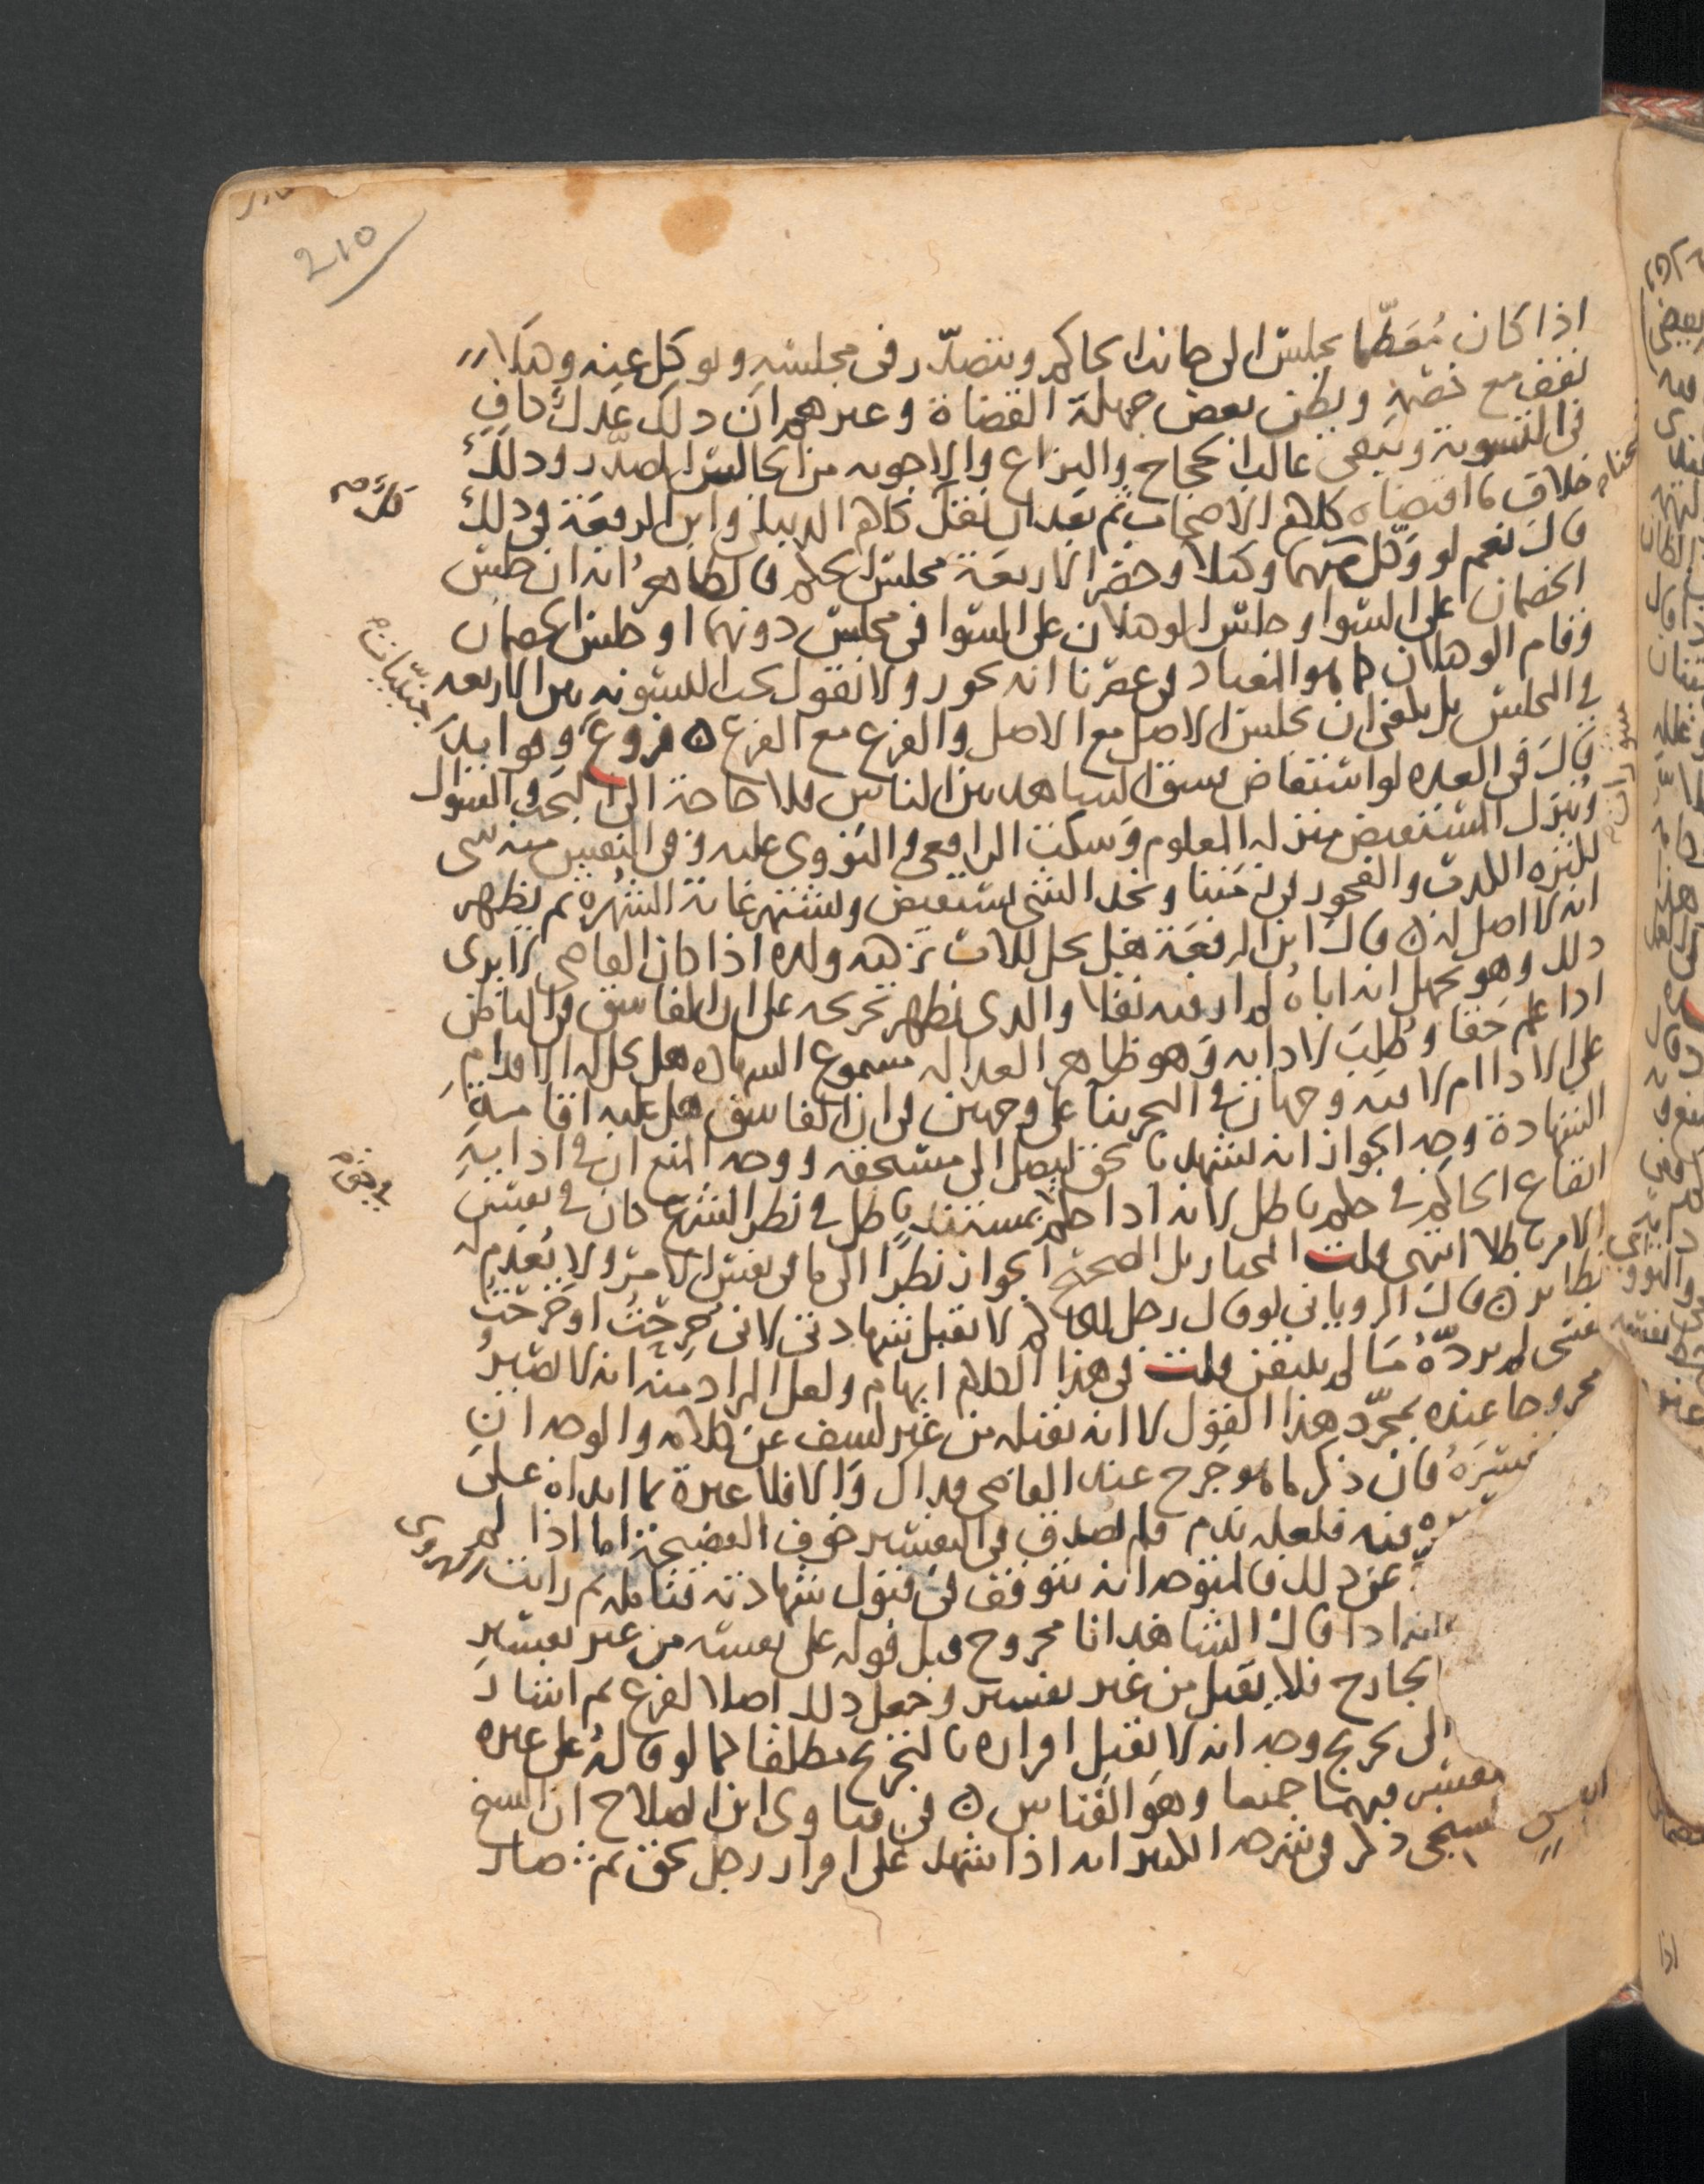 210
اذا كان مُعَظّما يجلس الى جانب الحاكم ويتصدّر في مجلسه ووكيل عنه وهكذا
يقف مع خصمه ويظن بعض جهلة القضاة وغيرهم ان ذلك عدل كاف
في التسوية ويبقى غالب الحجاج والنزاع والاجوبه من الجالس المصدّر وذلك
خلاف ما اقتضاه كلام الاصحاب ثم بعد ان نقل كلام الدبيلي وابن الرفعة في ذلك
قال نعم لو وَكّل كل منهما وكيلا وحضر الاربعة مجلس الحكم فالظاهر انه ان جلس
الخصمان على السوا وجلس الوكيلان على السوا في مجلس دونهما او جلس الخصمان
وقام الوكيلان كما هو المعتاد في عصرنا انه يجوز ولا نقول يجب التسويه بين الاربعه
في المجلس بل يكفي ان يجلس الاصل مع الاصل والفرع مع الفرع ه فروع وفوايد
قال في العده لو استفاض فسق الشاهد بين الناس فلا حاجة الى البحث والسوال
وينزل المستفيض منزله المعلوم وسكت الرافعي والنووي عليه وفي النفس منه شي
لكثره الكذب والفجور في زمننا ونجد الشي يستفيض ويشتهر غاية الشهرة ثم يظهر
انه لا اصل له ه قال ابن الرفعة هل يحل للاب تزكيه ولده اذا كان القاضي لا يرى
ذلك وهو يجهل انه اباه لم ار فيه نقلا والذي يظهر تخريجه على ان الفاسق في الباطن
اذا علم حَقا وطُلِبَ لادايه وهو ظاهر العداله مسموع الشهاده هل يحل له الاقدام
على الادا ام لا فيه وجهان في البحر بنا على وجهين في ان الفاسق هل عليه اقامة
الشهادة وجه الجواز انه يشهد بالحق ليصل الى مستحقه ووجه المنع ان في ادايهِ
ايقاع الحاكم في حكم باطل لانه اذا حكم بمستند باطل في نظر الشرع كان في نفس
الامر باطلا انتهى قلت المختار بل الصحيح الجواز نظرا الى ما في نفس الامر ولا يُعدم له
نظاير ه قال الروياني لو قال رجل للحاكم لا تقبل شهادتي لاني جرحتُ او خرجت
لم يردّهُ ما لم يتيقن قلت في هذا الكلام ابهام ولعل المراد منه انه لا يصيرُ
مجروحا عنده بمجرّد هذا القول لا انه يقبله من غير كشف عن كلامه والوجه ان
فان ذكر ما هو جرح عند القاضي فذاك وَالا فلا عبرة بما ابداه على
فيه فلعله ندم ولم يصدق في التفسير خوف الفضيحة اما اذا لم
عن ذلك فالمتوجه انه يتوقف في قبول شهادته فتامله ثم رايت الهروي
اذا قال الشاهد انا مجروح قبل قوله على نفسه من غير تفسير
الجارح فلا يقبل من غير تفسير وجعل ذلك اصلا لفرع ثم اشار
الى تخريج وجه انه لا يقبل اقراره بالتجريح مطلقا كما لو قاله على غيره
فيهما جميعا وهو القياس ه في فتاوى ابن الصلاح ان الشيخ
ذكر في شرحه الكبير انه اذا شهد على اقرار رجل بحق ثم صار